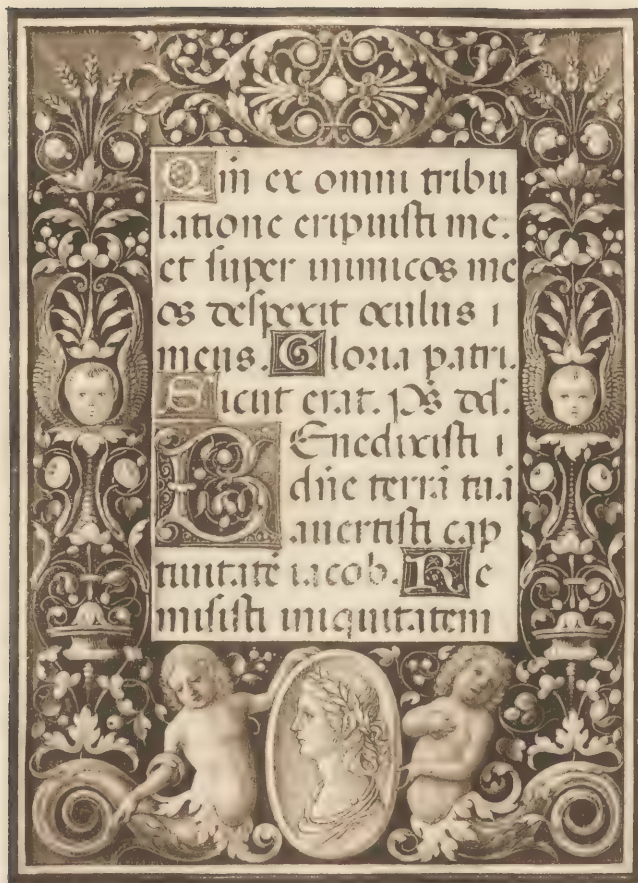 Qm ex omni tribu
latione eripuisti me.
et super inimicos me
os despexit oculus
meus. Gloria patri.
Sicut erat. Ps dd.
Benedixisti
dn̄e terrā tuā
avertisti cap
tivitatē iacob. Re
misisti iniquitatem